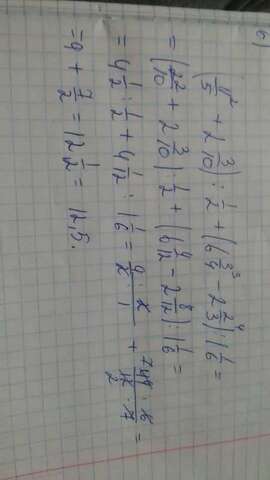 б)
(11/5 ² + 2 3/10) : 1/2 + (6 3/4 ³ - 2 2/3 ⁴) : 1 1/6 =
= (22/10 + 2 3/10) : 1/2 + (6 9/12 - 2 8/12) : 1 1/6 =
= 4 1/2 : 1/2 + 4 1/12 : 1 1/6 = 9 · 2/2 · 1 + 7 49 · 6/12 · 7 2 =
= 9 + 7/2 = 12 1/2 = 12,5.